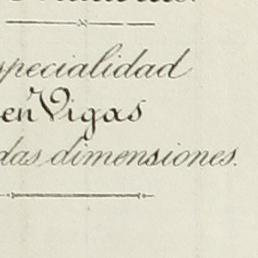 specialidad
en Vigas
das dimensiones.